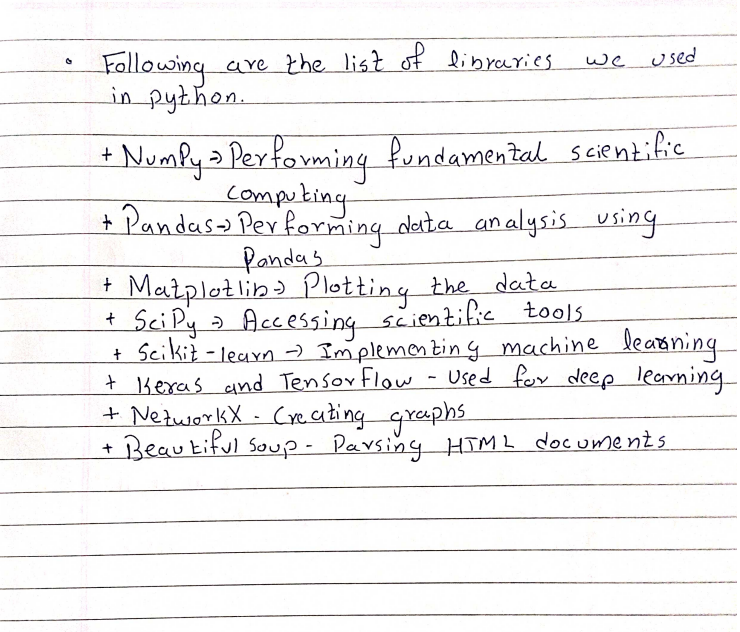 • Following are the list of libraries we used
in python.
+ NumPy → Performing fundamental scientific
computing
+ Pandas → Performing data analysis using
Pandas
+ Matplotlib → Plotting the data
+ SciPy → Accessing scientific tools
+ Scikit-learn → Implementing machine learning
+ Keras and TensorFlow - Used for deep learning
+ NetworkX - Creating graphs
+ Beautiful Soup - Parsing HTML documents